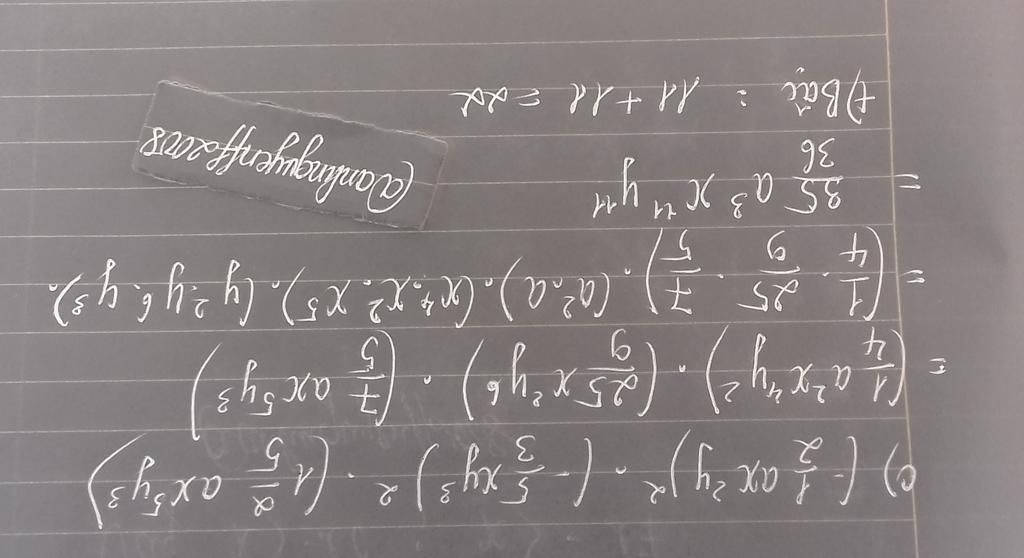 c) (-1/2 ax²y)² . (-5/3 xy³)² . (1 2/5 ax⁵y³)
= (1/4 a²x⁴y²) . (25/9 x²y⁶) . (7/5 ax⁵y³)
= (1/4 . 25/9 . 7/5) . (a².a) . (x⁴.x².x⁵) . (y².y⁶.y³).
= 35/36 a³x¹¹y¹¹
+) Bậc : 11 + 11 = 22
@anhnguyenff2008